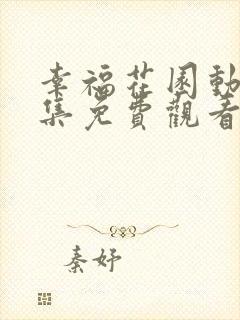 幸福花園動
集免費觀看
秦妤